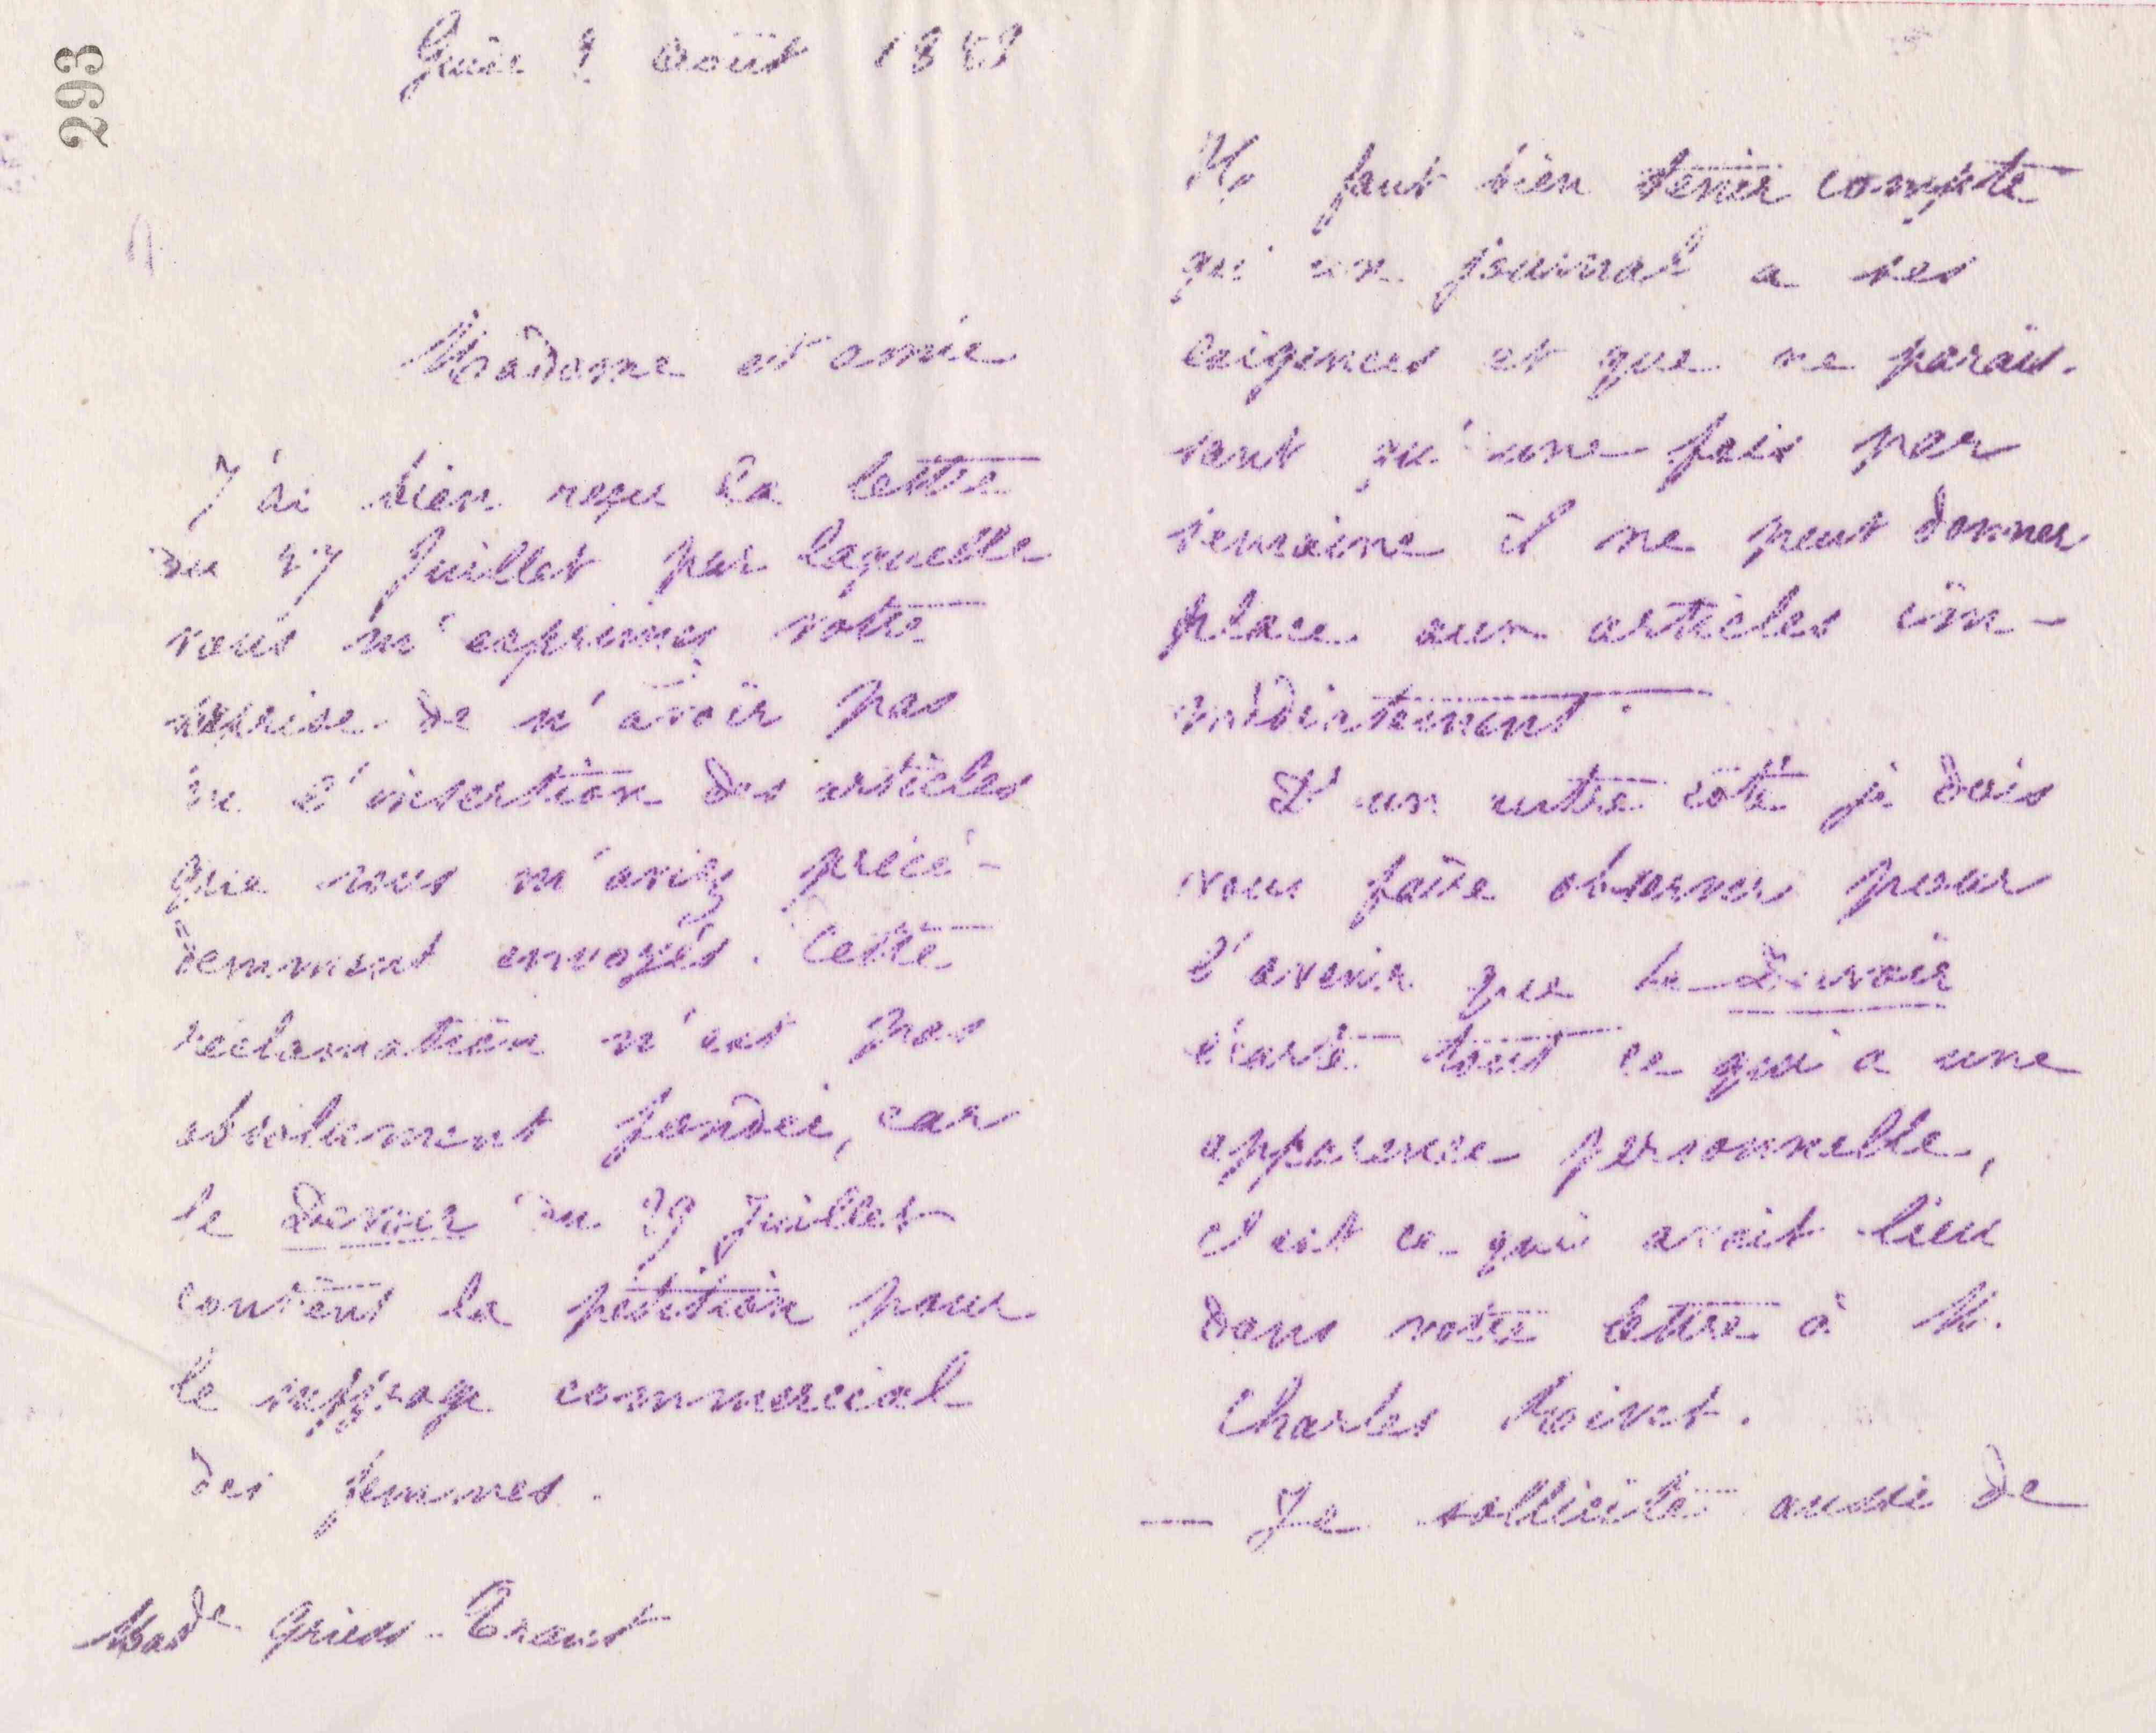 293
Guise août 188
Madame et amie
J'ai bien reçu la lettre
du 27 Juillet par laquelle
vous m'exprimez votre
surprise de n'avoir pas
vu l'insertion des articles
que vous m'aviez précé-
demment envoyés. Cette
réclamation n'est pas
absolument fondée, car
le Devoir du 29 Juillet
contient la pétition pour
le suffrage commercial
des femmes.
Made Griess-Traut
Il faut bien tenir compte
qu'un journal a ses
exigences et que ne parais-
sant qu'une fois par
semaine il ne peut donner
place aux articles im-
médiatement.
D'un autre côté je dois
vous faire observer pour
l'avenir que le Devoir
écarte tout ce qui a une
apparence personnelle,
c'est ce qui avait lieu
dans votre lettre à M.
Charles
— Je sollicite aussi de